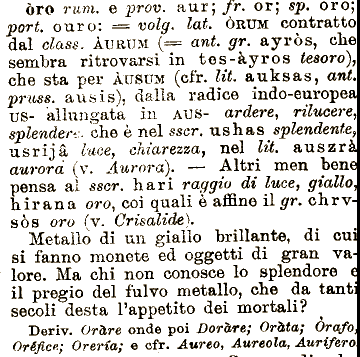 òro rum. e prov. aur; fr. or; sp. oro;
port. ouro: = volg. lat. ÒRUM contratto
dal class. ÀURUM (= ant. gr. ayròs, che
sembra ritrovarsi in tes-àyros tesoro),
che sta per ÀUSUM (cfr. lit. auksas, ant.
pruss. ausis), dalla radice indo-europea
US- allungata in AUS- ardere, rilucere,
splendere che è nel sscr. ushas splendente,
usrijâ luce, chiarezza, nel lit. auszrà
aurora (v. Aurora). — Altri men bene
pensa al sscr. hari raggio di luce, giallo,
hirana oro, coi quali è affine il gr. chrv-
sòs oro (v. Crisalide).
Metallo di un giallo brillante, di cui
si fanno monete ed oggetti di gran va-
lore. Ma chi non conosce lo splendore e
il pregio del fulvo metallo, che da tanti
secoli desta l'appetito dei mortali?
Deriv. Oràre onde poi Doràre; Oràta; Òrafo,
Oréfice; Orería; e cfr. Aureo, Aureola, Aurífero